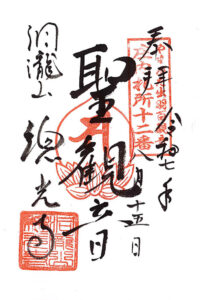 令和七年
八月十五日
奉拝
庄内札所十二番
聖観音
洞瀧山
總光寺